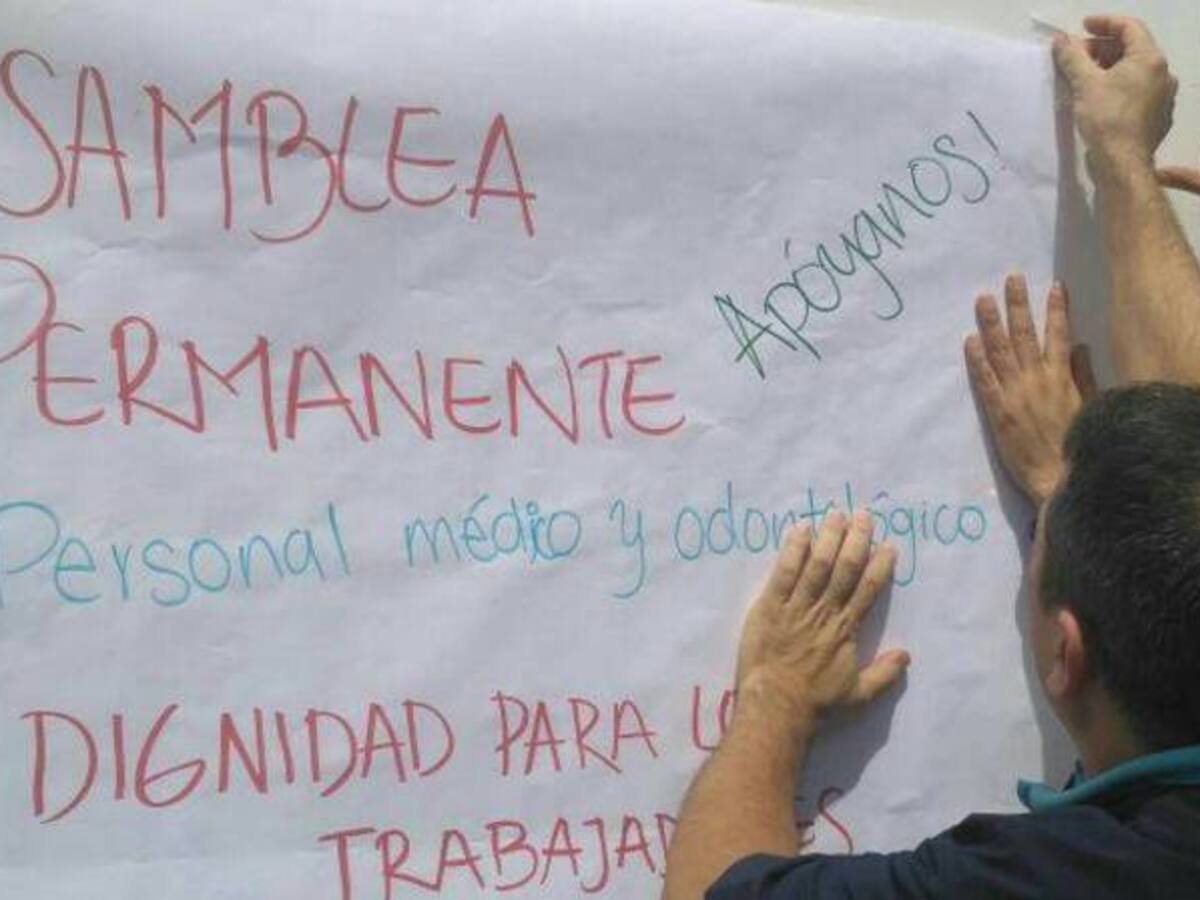 SAMBLEA
PERMANENTE
Apóyanos!
Personal médico y odontológico
DIGNIDAD PARA LO
TRABAJAD ES